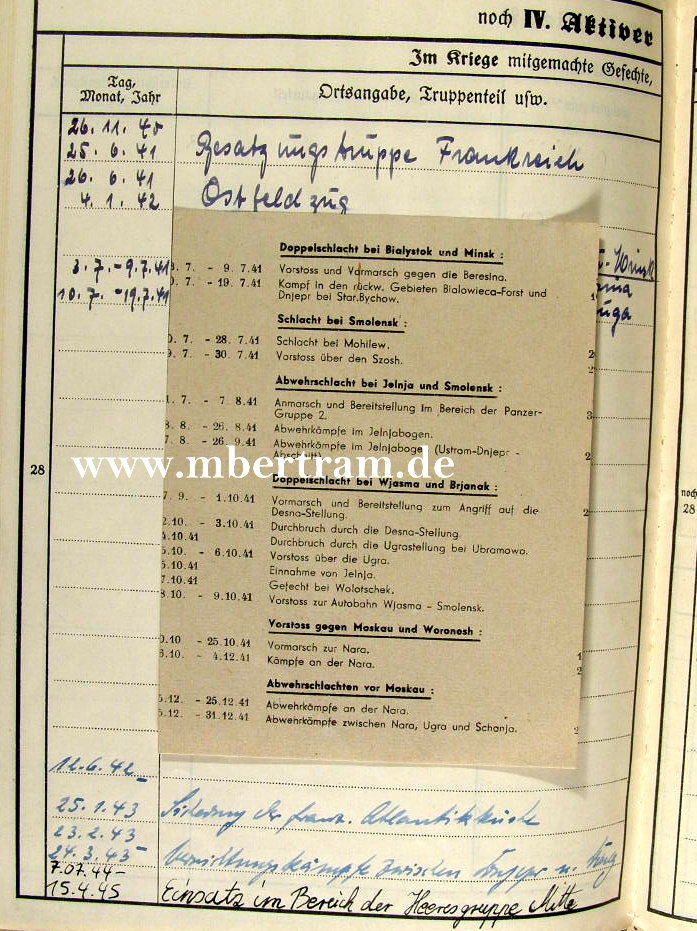 noch IV. Aktiver
Im Kriege mitgemachte Gefechte,
Tag,
Monat, Jahr
Ortsangabe, Truppenteil usw.
26. 11. 40
25. 6. 41
Besatzungstruppe Frankreich
26. 6. 41
4. 1. 42
Ostfeldzug
3. 7. - 9. 7. 41
10. 7. - 19. 7. 41
Doppelschlacht bei Bialystok und Minsk :
. 7. - 9. 7.41 Vorstoss und Vormarsch gegen die Beresina.
0. 7. - 19. 7.41 Kampf in den rückw. Gebieten Bialowieca-Forst und
Dnjepr bei Star.Bychow.
Schlacht bei Smolensk :
0. 7. - 28. 7.41 Schlacht bei Mohilew.
9. 7. - 30. 7.41 Vorstoss über den Szosh.
Abwehrschlacht bei Jelnja und Smolensk :
1. 7. - 7. 8.41 Anmarsch und Bereitstellung im Bereich der Panzer-
Gruppe 2.
8. 8. - 26. 8.41 Abwehrkämpfe im Jelnjabogen.
7. 8. - 26. 9.41 Abwehrkämpfe im Jelnjabogen (Ustrom-Dnjepr -
Abschnitt)
28
www.mbertram.de
Doppelschlacht bei Wjasma und Brjanak :
7. 9. - 1.10.41 Vormarsch und Bereitstellung zum Angriff auf die
Desna-Stellung.
2.10. - 3.10.41 Durchbruch durch die Desna-Stellung.
4.10.41 Durchbruch durch die Ugrastellung bei Ubramowo.
5.10. - 6.10.41 Vorstoss über die Ugra.
6.10.41 Einnahme von Jelnja.
7.10.41 Gefecht bei Wolotschek.
8.10. - 9.10.41 Vorstoss zur Autobahn Wjasma - Smolensk.
Vorstoss gegen Moskau und Woronesh :
0.10. - 25.10.41 Vormarsch zur Nara.
6.10. - 4.12.41 Kämpfe an der Nara.
Abwehrschlachten vor Moskau :
5.12. - 25.12.41 Abwehrkämpfe an der Nara.
5.12. - 31.12.41 Abwehrkämpfe zwischen Nara, Ugra und Schanja.
12. 6. 42 -
25. 1. 43 Sicherung der franz. Atlantikküste
23. 2. 43
24. 3. 43 - Vernichtungskämpfe zwischen Dnjepr u.
7.07.44 -
15.4.45 Einsatz im Bereich der Heeresgruppe Mitte
noch
28